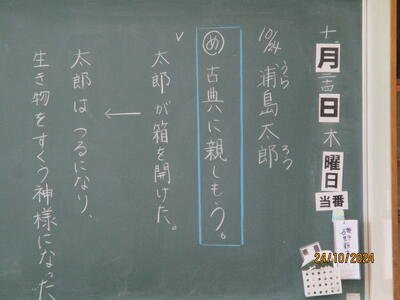 十月二十四日木曜日
当番
10/24 浦島太郎
うら ろう
め 古典に親しもう。
太郎が箱を開けた。
←
太郎はつるになり、
生き物をすくう神様になった
24/10/2024